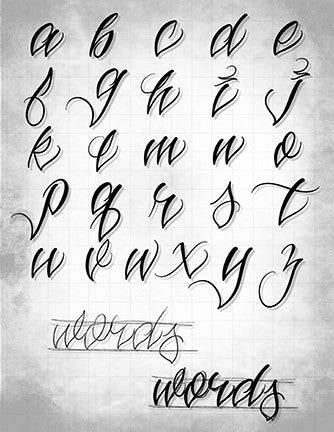 a b c d e
f g h i j
k l m n o
p q r s t
u v w x y z
words
words